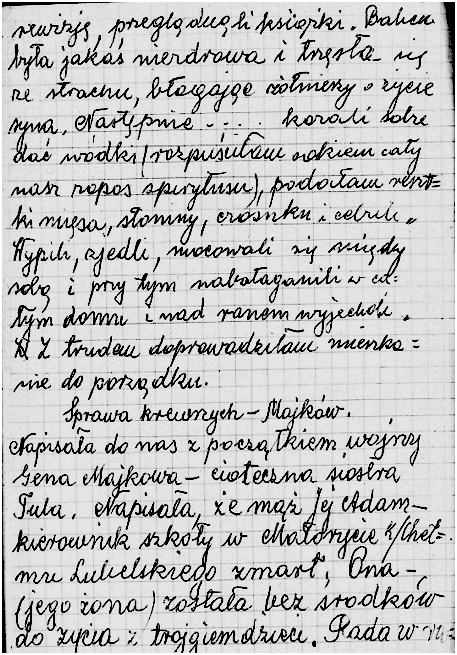 rewizję, przeglądnęli książki. Babcia
była jakaś niezdrowa i trzęsła się
ze strachu, błagając żołnierzy o życie
syna. Następnie .... kazali sobie
dać wódki (rozpuściłam sokiem cały
nasz zapas spirytusu), podałam reszt=
ki mięsa, słoniny, czosnku i cebuli.
Wypili, zjedli, mocowali się między
sobą i przy tym nabałaganili w ca=
łym domu i nad ranem wyjechali.
Z trudem doprowadziłam mieszka=
nie do porządku.
Sprawa krewnych – Majków.
Napisała do nas z początkiem wojny
Gena Majkowa – cioteczna siostra
Tula. Napisała, że mąż Jej Adam –
kierownik szkoły w Małorycie k/Cheł=
mu Lubelskiego zmarł, Ona –
(jego żona) została bez środków
do życia z trojgiem dzieci. Rada w